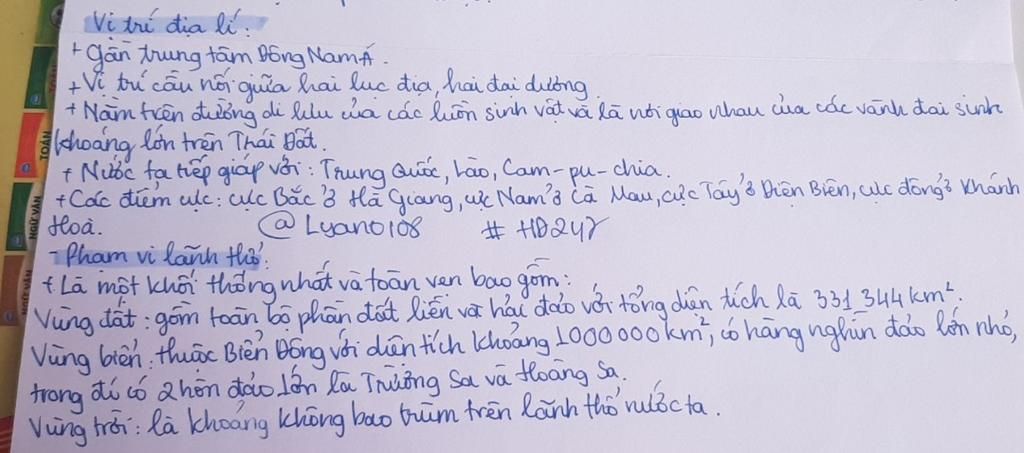 Vị trí địa lí:
+ Gần trung tâm Đông Nam Á.
+ Vị trí cầu nối giữa hai lục địa, hai đại dương
+ Nằm trên đường di lưu của các luồn sinh vật và là nơi giao nhau của các vành đai sinh
khoáng lớn trên Thái Đất.
+ Nước ta tiếp giáp với: Trung Quốc, Lào, Cam-pu-chia.
+ Các điểm cực: cực Bắc ở Hà Giang, cực Nam ở Cà Mau, cực Tây ở Điện Biên, cực đông ở Khánh
Hoà. @Lyano108 # HĐ247
- Phạm vi lãnh thổ:
+ Là một khối thống nhất và toàn vẹn bao gồm:
Vùng đất: gồm toàn bộ phần đất liền và hải đảo với tổng diện tích là 331 344 km².
Vùng biển: thuộc Biển Đông với diện tích khoảng 1000 000 km², có hàng nghìn đảo lớn nhỏ,
trong đó có 2 hòn đảo lớn là Trường Sa và Hoàng Sa.
Vùng trời: là khoảng không bao trùm trên lãnh thổ nước ta.
TOÁN
TOÁN
NGỮ VĂN
NGỮ VĂN